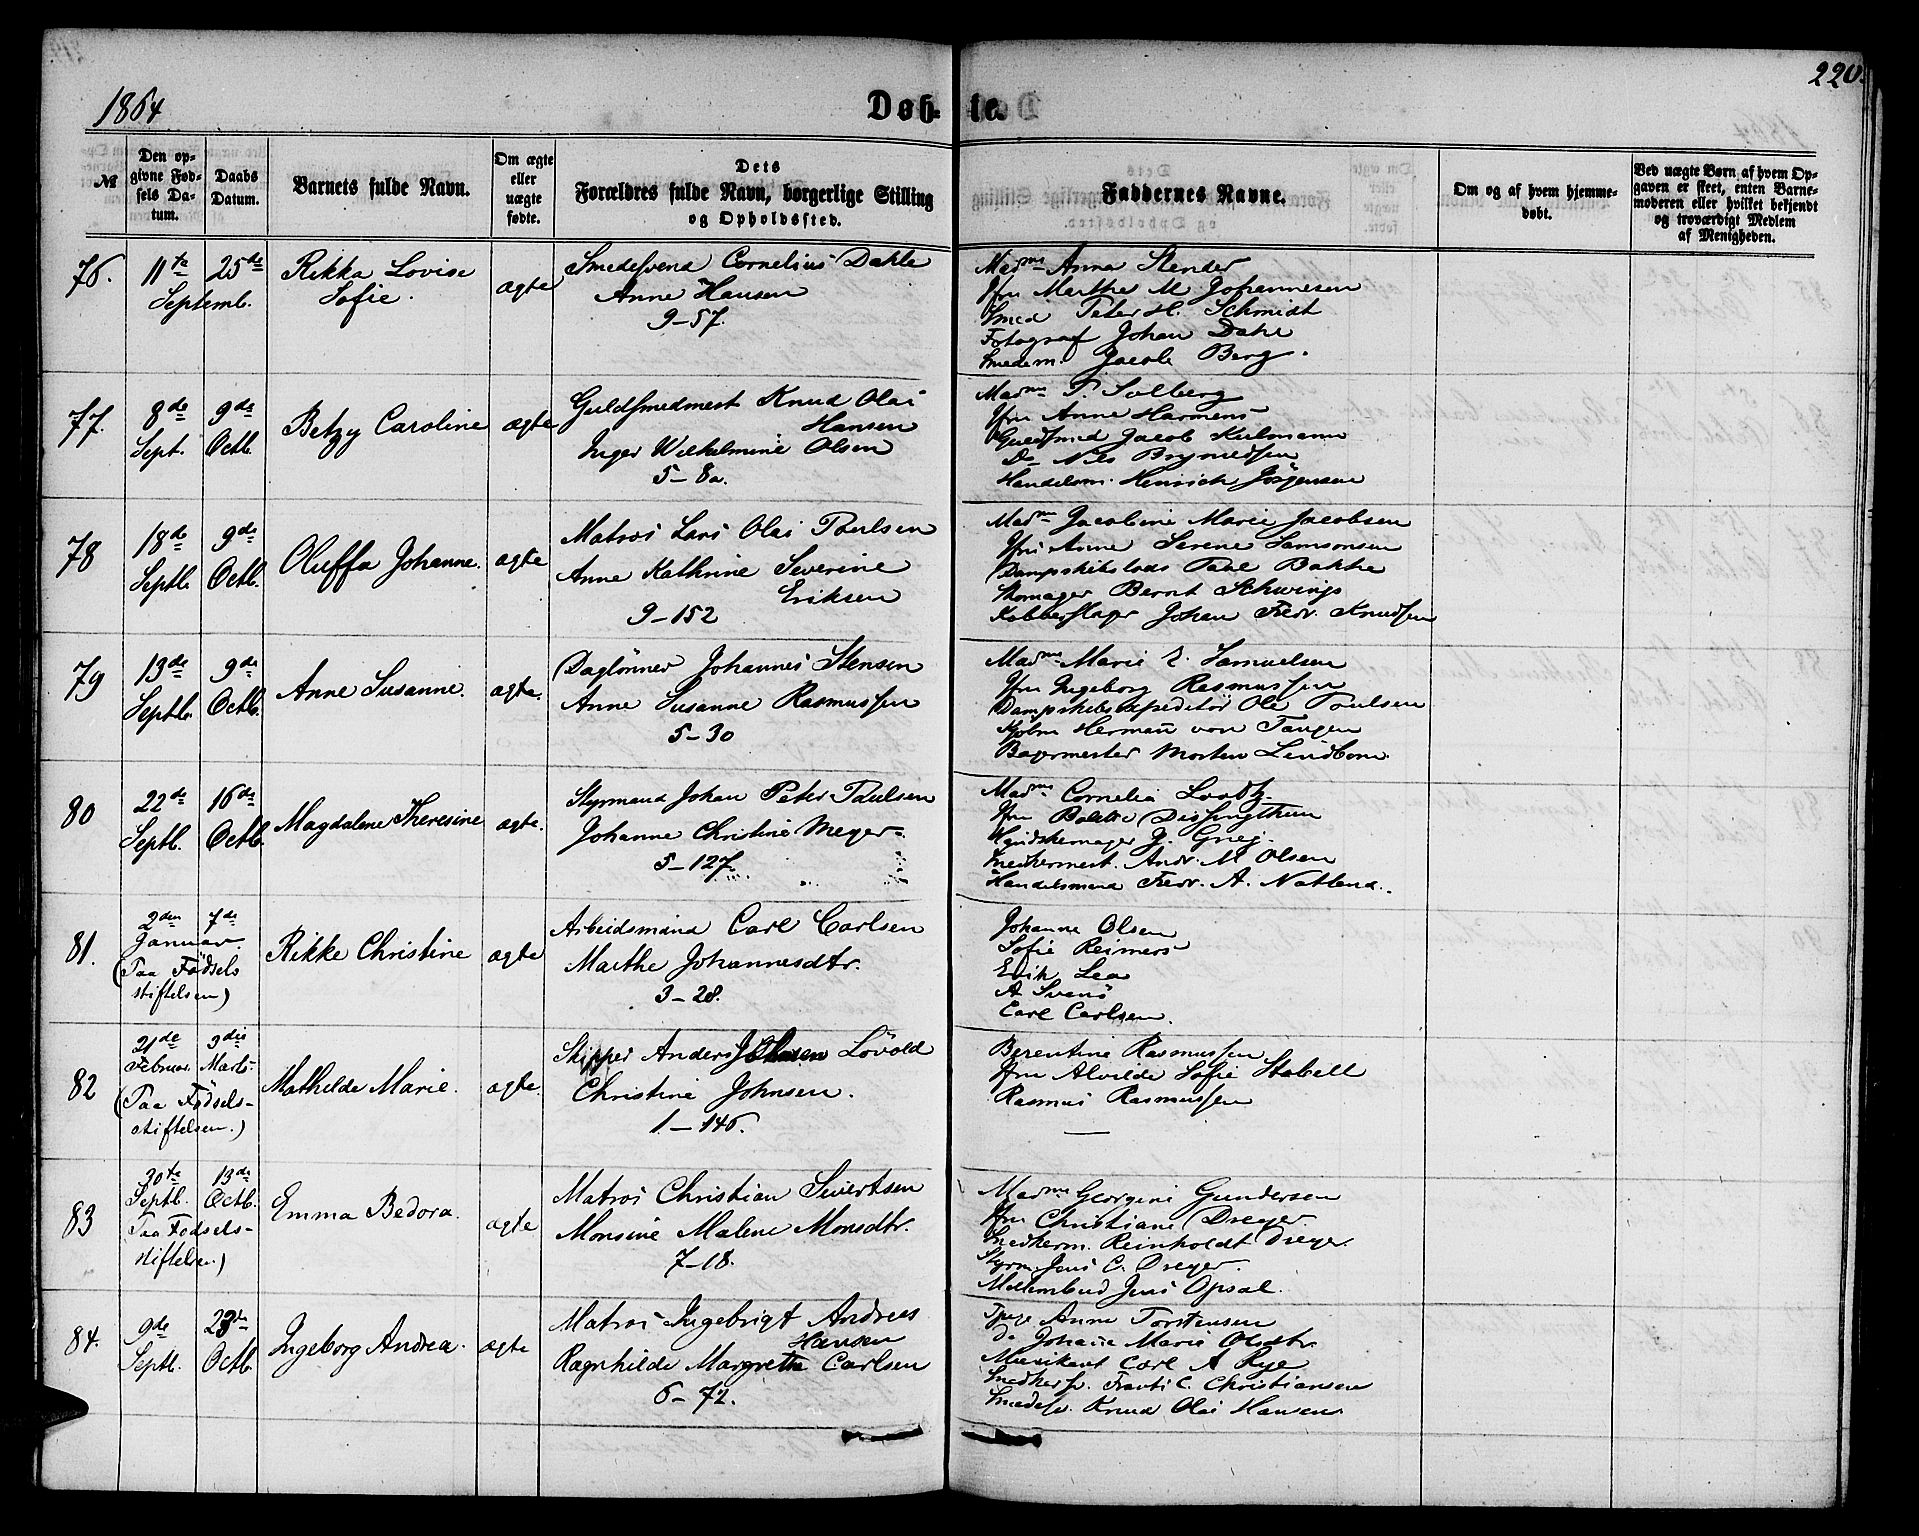 1864
Døbte.
220.
№
Den opgivne Fødsels Datum.
Daabs Datum.
Barnets fulde Navn.
Om ægte eller uægte fødte.
Dets Forældres fulde Navn, borgerlige Stilling og Opholdssted.
Faddernes Navne.
Om og af hvem hjemmedøbt.
Ved uægte Børn af hvem Opgaven er skeet, enten Barnemoderen eller hvilket bekjendt og troværdigt Medlem af Menigheden.
76. 11te 25de Septemb.
Rikka Lovise
Sofie.
ægte
Smedesvend Cornelius Dahle
Anne Hansen
9-57.
Madme Anna Stender
Jfru Marthe M Johannesen
Smed Peter H. Schmidt
Fotograf Johan Dahl
Smedem. Jacob Berg.
77. 8de Sept. 9de Octb.
Betzy Caroline
ægte
Guldsmedmest Knud Olai
Hansen
Inger Wilhelmine Olsen
5-8a.
Madme P. Solberg
Jfru Anne Harmens
Guldsmed Jacob Kielmann
Do Nils Brynildsen
Handelsm. Henrich Jörgensen
78 18de Septb. 9de Octb.
Oluffa Johanne.
ægte
Matros Lars Olai Poulsen
Anne Kathrine Severine
Eriksen
9-152
Madme Jacobine Marie Jacobsen
Jfru Anne Serene Samsonsen
Dampskibslods Bakke
Skomager Bernt Schwings
Kobberslager Johan Fredr. Knudsen
79 13de Septb. 9de Octb.
Anne Susanne.
ægte.
Daglönner Johannes Stensen
Anne Susanne Rasmussen
5-30
Madme Marie E. Samuelsen
Jfru Ingeborg Rasmussen
Dampskibsexpeditör Ole Poulsen
Herman von Tangen
Bagermester Morten Lindbom.
80 22de Septb. 16de Octb.
Magdalene Theresine
ægte.
Styrmand Johan Peter Paulsen
Johanne Christine Meyer
5-127.
Madme Cornelia Lootz
Jfru Bolette Dissingthun
Handskemager J. Grieg.
Snedkermest. Andr. M Olsen
Handelsmand Fredr. A. Natland.
81. 2den 7de Januar.
(Paa Födsels
stiftelsen)
Rikke Christine
ægte
Arbeidsmand Carl Carlsen
Marthe Johannesdtr.
3-28.
Johanne Olsen
Sofie Reimers
Erik Lea
A Svenö
Carl Carlsen.
82 21de Februar. 9des Marts.
(Paa Födsels-
stiftelsen.)
Mathilde Marie.
ægte.
Skipper Anders Johnsen Lövold
Christine Johnsen.
1-146.
Berentine Rasmussen
Jfru Alvilde Sofie Stabell
Rasmus Rasmussen
83 30te Septb. 13de Octb.
(Paa Födsels-
stiftelsen)
Emma Bedora.
ægte
Matros Christian Sivertsen
Monsine Malene Monsdtr.
7-18.
Madme Georgine Gundersen
Jfru Christiane Dreyer.
Snedkerm. Reinholdt Dreyer.
Styrm. Jens C. Dreyer.
Möllersvend Jens Opsal.
84. 9de Septb. 23de Octb.
Ingeborg Andrea.
ægte
Matros Ingebrigt Andreas
Hansen
Ragnhilde Margrethe Carlsen
6-72.
Pige Anne Torstensen
do Johanne Marie Olsdtr.
Musikant Carl A Rye
Snedkersv. Frantz C. Christiansen
Smedesv. Knud Olai Hansen.